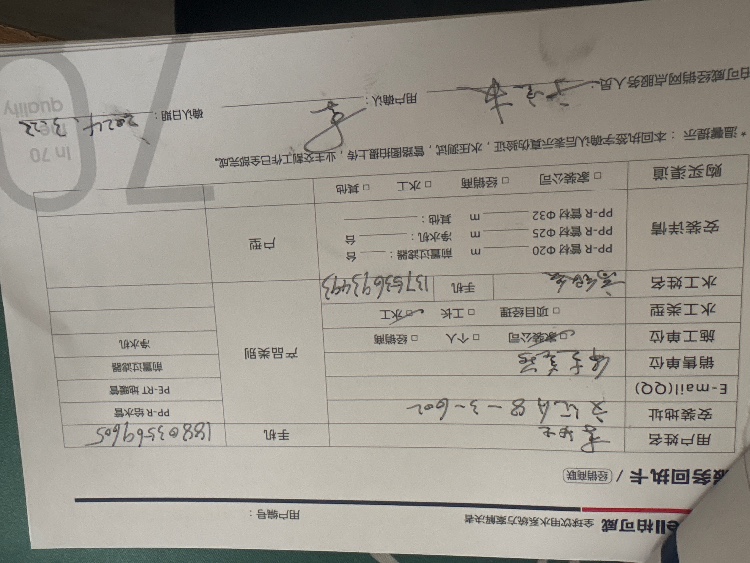 ell柏可威 全球饮用水系统方案解决者
用户编号：
服务回执卡 / 经销商联
用户姓名 手机 18803569605
安装地址 8-3-602 PP-R 给水管
E-mail(QQ) PE-RT 地暖管
销售单位 前置过滤器
施工单位 □ 家装公司 □ 个人 □ 经销商 产品类别 净水机
水工类型 □ 项目经理 □ 工长 □ 水工
水工姓名 手机 13753693493
安装详情 PP-R 管材 Φ20 m 前置过滤器： 台 户型
PP-R 管材 Φ25 m 净水机： 台
PP-R 管材 Φ32 m 其他：
购买渠道 □ 家装公司 □ 经销商 □ 水工 □ 其他
* 温馨提示：本回执签字确认后表示真伪验证，水压测试，管路图拍摄上传，业主交底工作已全部完成。
柏可威经销网点服务人员： 用户确认： 确认日期： 2024.3.22
In 70
quality
70